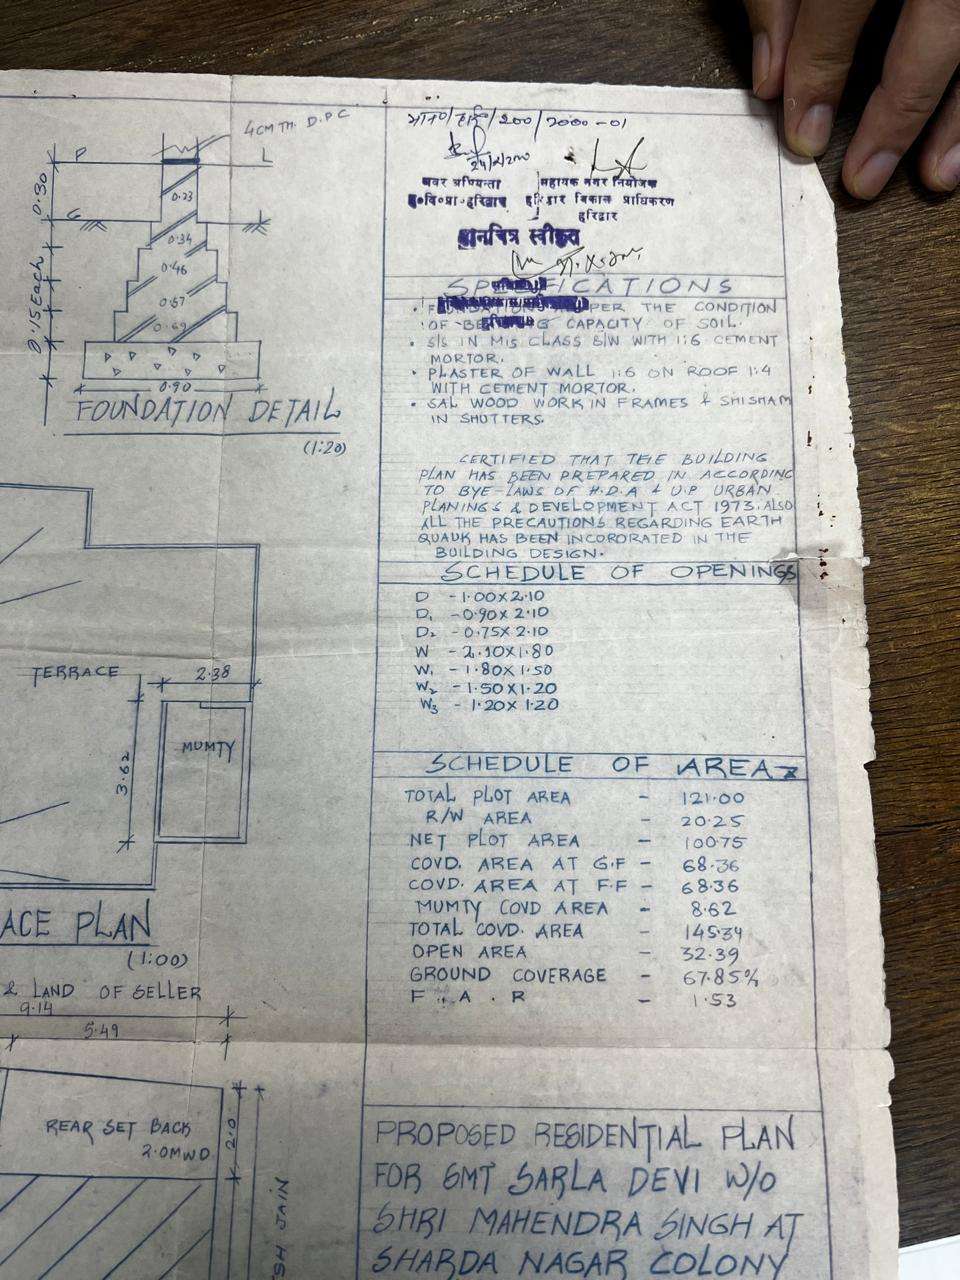 4CM TH. D.P.C
P
L
0.30
0.23
G
0.34
0.46
0.57
0.69
0.15 Each
0.90
FOUNDATION DETAIL
(1:20)
/200/2000-01
अवर अभियन्ता
सहायक नगर नियोजक
ह०वि०प्रा०हरिद्वार
हरिद्वार विकास प्राधिकरण
हरिद्वार
मानचित्र स्वीकृत
SPECIFICATIONS
• FOUNDATION AS PER THE CONDITION
OF BEARING CAPACITY OF SOIL.
• S/S IN M15 CLASS B/W WITH 1:6 CEMENT
MORTOR.
• PLASTER OF WALL 1:6 ON ROOF 1:4
WITH CEMENT MORTOR.
• SAL WOOD WORK IN FRAMES & SHISHAM
IN SHUTTERS.
CERTIFIED THAT THE BUILDING
PLAN HAS BEEN PREPARED IN ACCORDING
TO BYE-LAWS OF H.D.A & U.P URBAN
PLANINGS & DEVELOPMENT ACT 1973. ALSO
ALL THE PRECAUTIONS REGARDING EARTH
QUAUK HAS BEEN INCORORATED IN THE
BUILDING DESIGN.
SCHEDULE OF OPENINGS
D - 1.00X2.10
D1 - 0.90X2.10
D2 - 0.75X2.10
W - 2.10X1.80
W1 - 1.80X1.50
W2 - 1.50X1.20
W3 - 1.20X1.20
TERRACE
2.38
MUMTY
3.62
SCHEDULE OF AREA
TOTAL PLOT AREA - 121.00
R/W AREA - 20.25
NET PLOT AREA - 100.75
COVD. AREA AT G.F - 68.36
COVD. AREA AT F.F - 68.36
MUMTY COVD AREA - 8.62
TOTAL COVD. AREA - 145.34
OPEN AREA - 32.39
GROUND COVERAGE - 67.85%
F.A.R - 1.53
ACE PLAN
(1:00)
& LAND OF SELLER
9.14
5.49
REAR SET BACK
2.0MWD
2.0
SH JAIN
PROPOSED RESIDENTIAL PLAN
FOR SMT SARLA DEVI W/O
SHRI MAHENDRA SINGH AT
SHARDA NAGAR COLONY